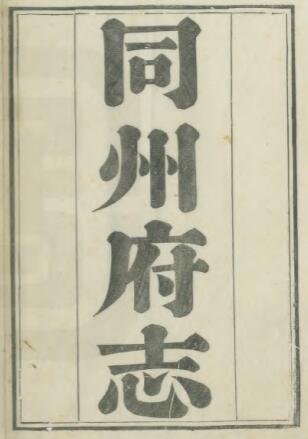 同州府志